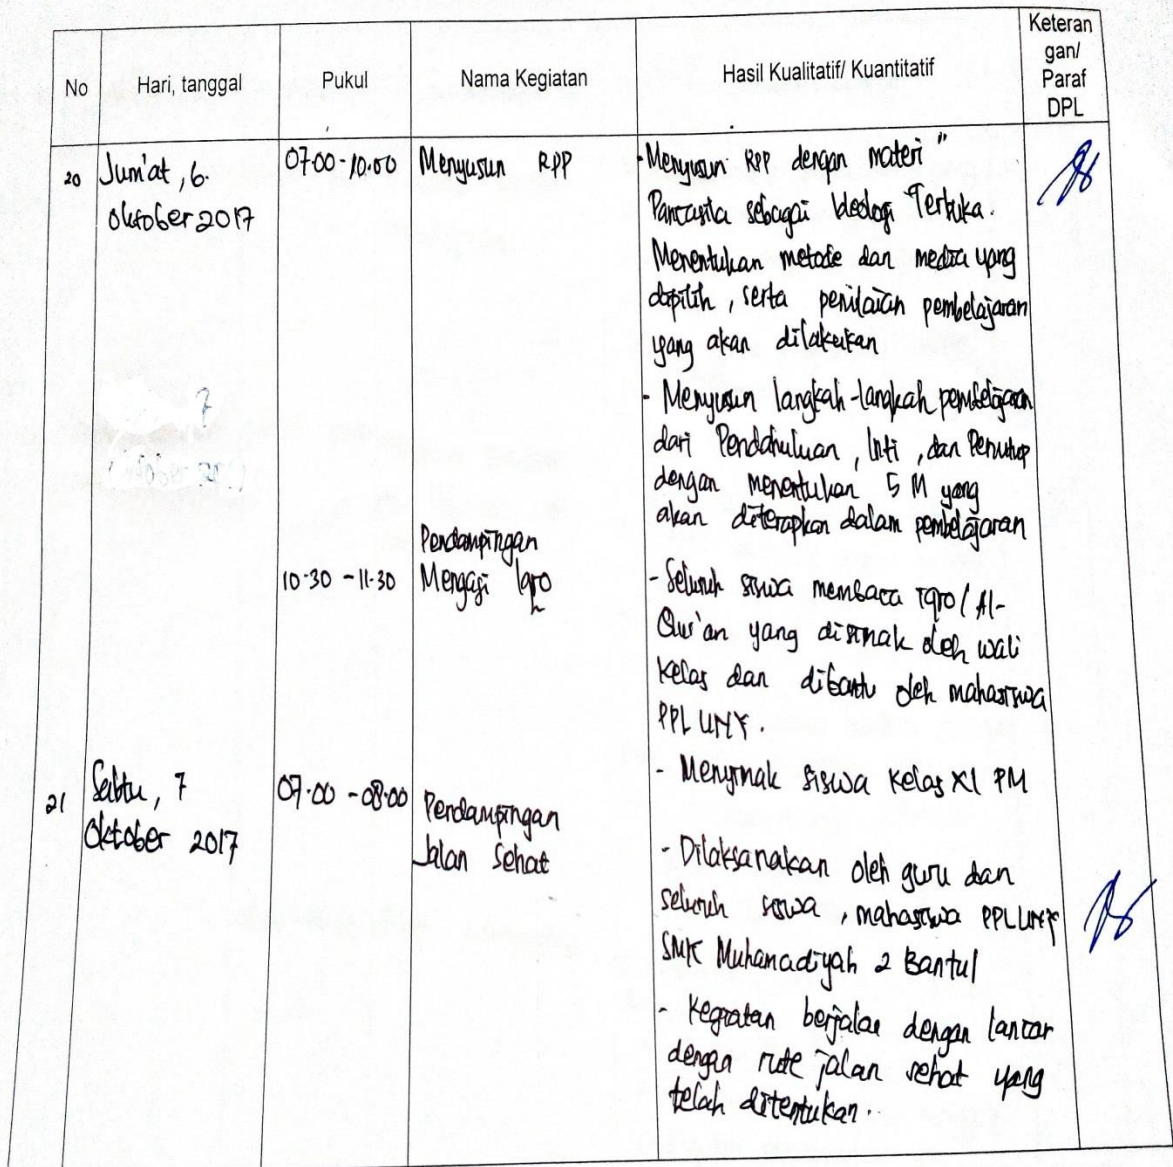 No
Hari, tanggal
Pukul
Nama Kegiatan
Hasil Kualitatif/ Kuantitatif
Keteran
gan/
Paraf
DPL
20
Jum'at, 6.
Oktober 2017
07.00 - 10.00
Menyusun RPP
- Menyusun RPP dengan materi "
Pancasila sebagai Ideologi Terbuka.
Menentukan metode dan media yang
dipilih, serta penilaian pembelajaran
yang akan dilakukan
- Menyusun langkah-langkah pembelajaran
dari Pendahuluan, Inti, dan Penutup
dengan menentukan 5 M yang
akan diterapkan dalam pembelajaran
10.30 - 11.30
Pendampingan
Mengaji Iqro
- Seluruh siswa membaca Iqro / Al-
Qur'an yang disimak oleh wali
kelas dan dibantu oleh mahasiswa
PPL UNY.
- Menyimak siswa kelas XI PM
21
Sabtu, 7
Oktober 2017
07.00 - 08.00
Pendampingan
Jalan Sehat
- Dilaksanakan oleh guru dan
seluruh siswa, mahasiswa PPL UNY
SMK Muhamadiyah 2 Bantul
- Kegiatan berjalan dengan lancar
dengan rute jalan sehat yang
telah ditentukan.